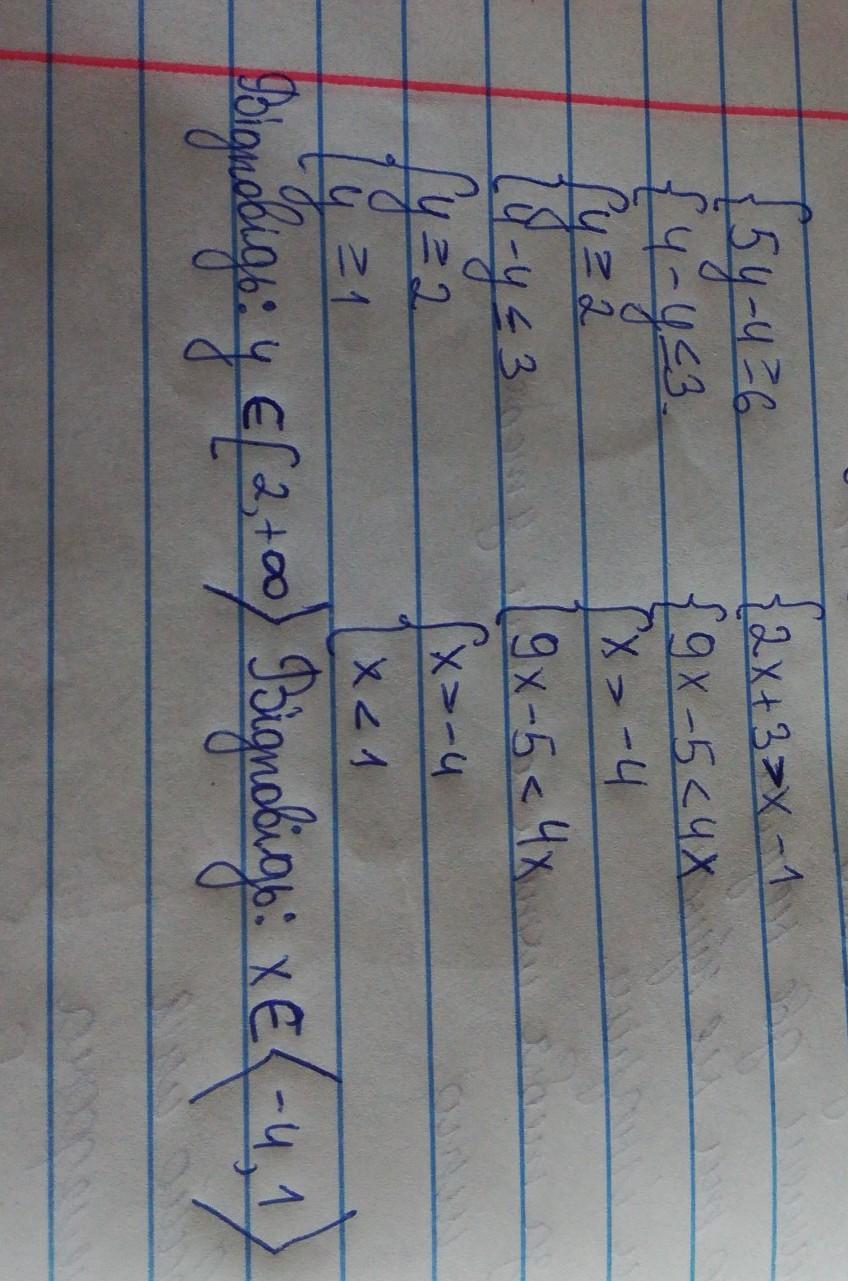 { 5y - 4 ≥ 6
{ 4 - y ≤ 3.
{ y ≥ 2
{ 4 - y ≤ 3
{ y ≥ 2
{ y ≥ 1
Відповідь: y ∈ [2, +∞⟩
{ 2x + 3 > x - 1
{ 9x - 5 < 4x
{ x > -4
{ 9x - 5 < 4x
{ x > -4
{ x < 1
Відповідь: x ∈ ⟨-4, 1⟩